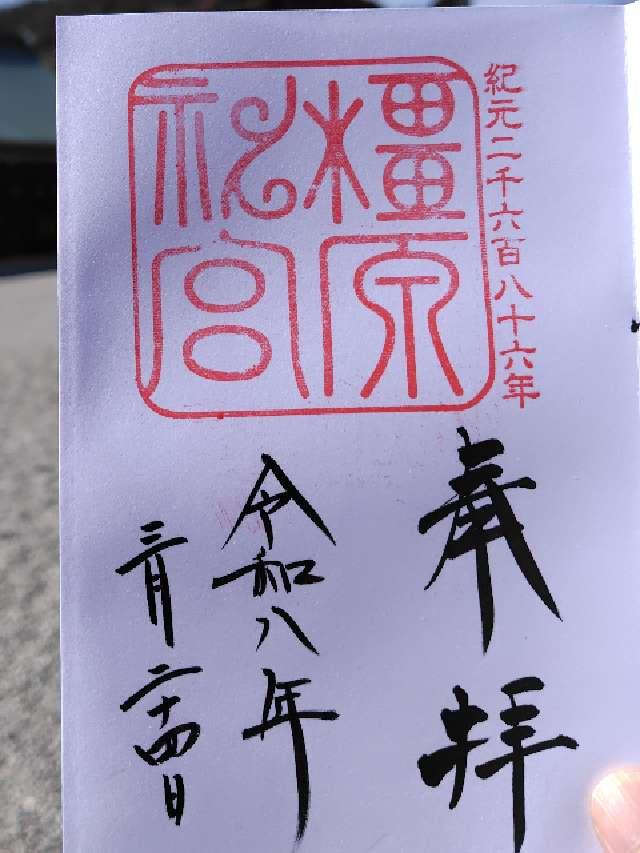 紀元二千六百八十六年
橿原
神宮
奉拝
令和八年
三月二十四日